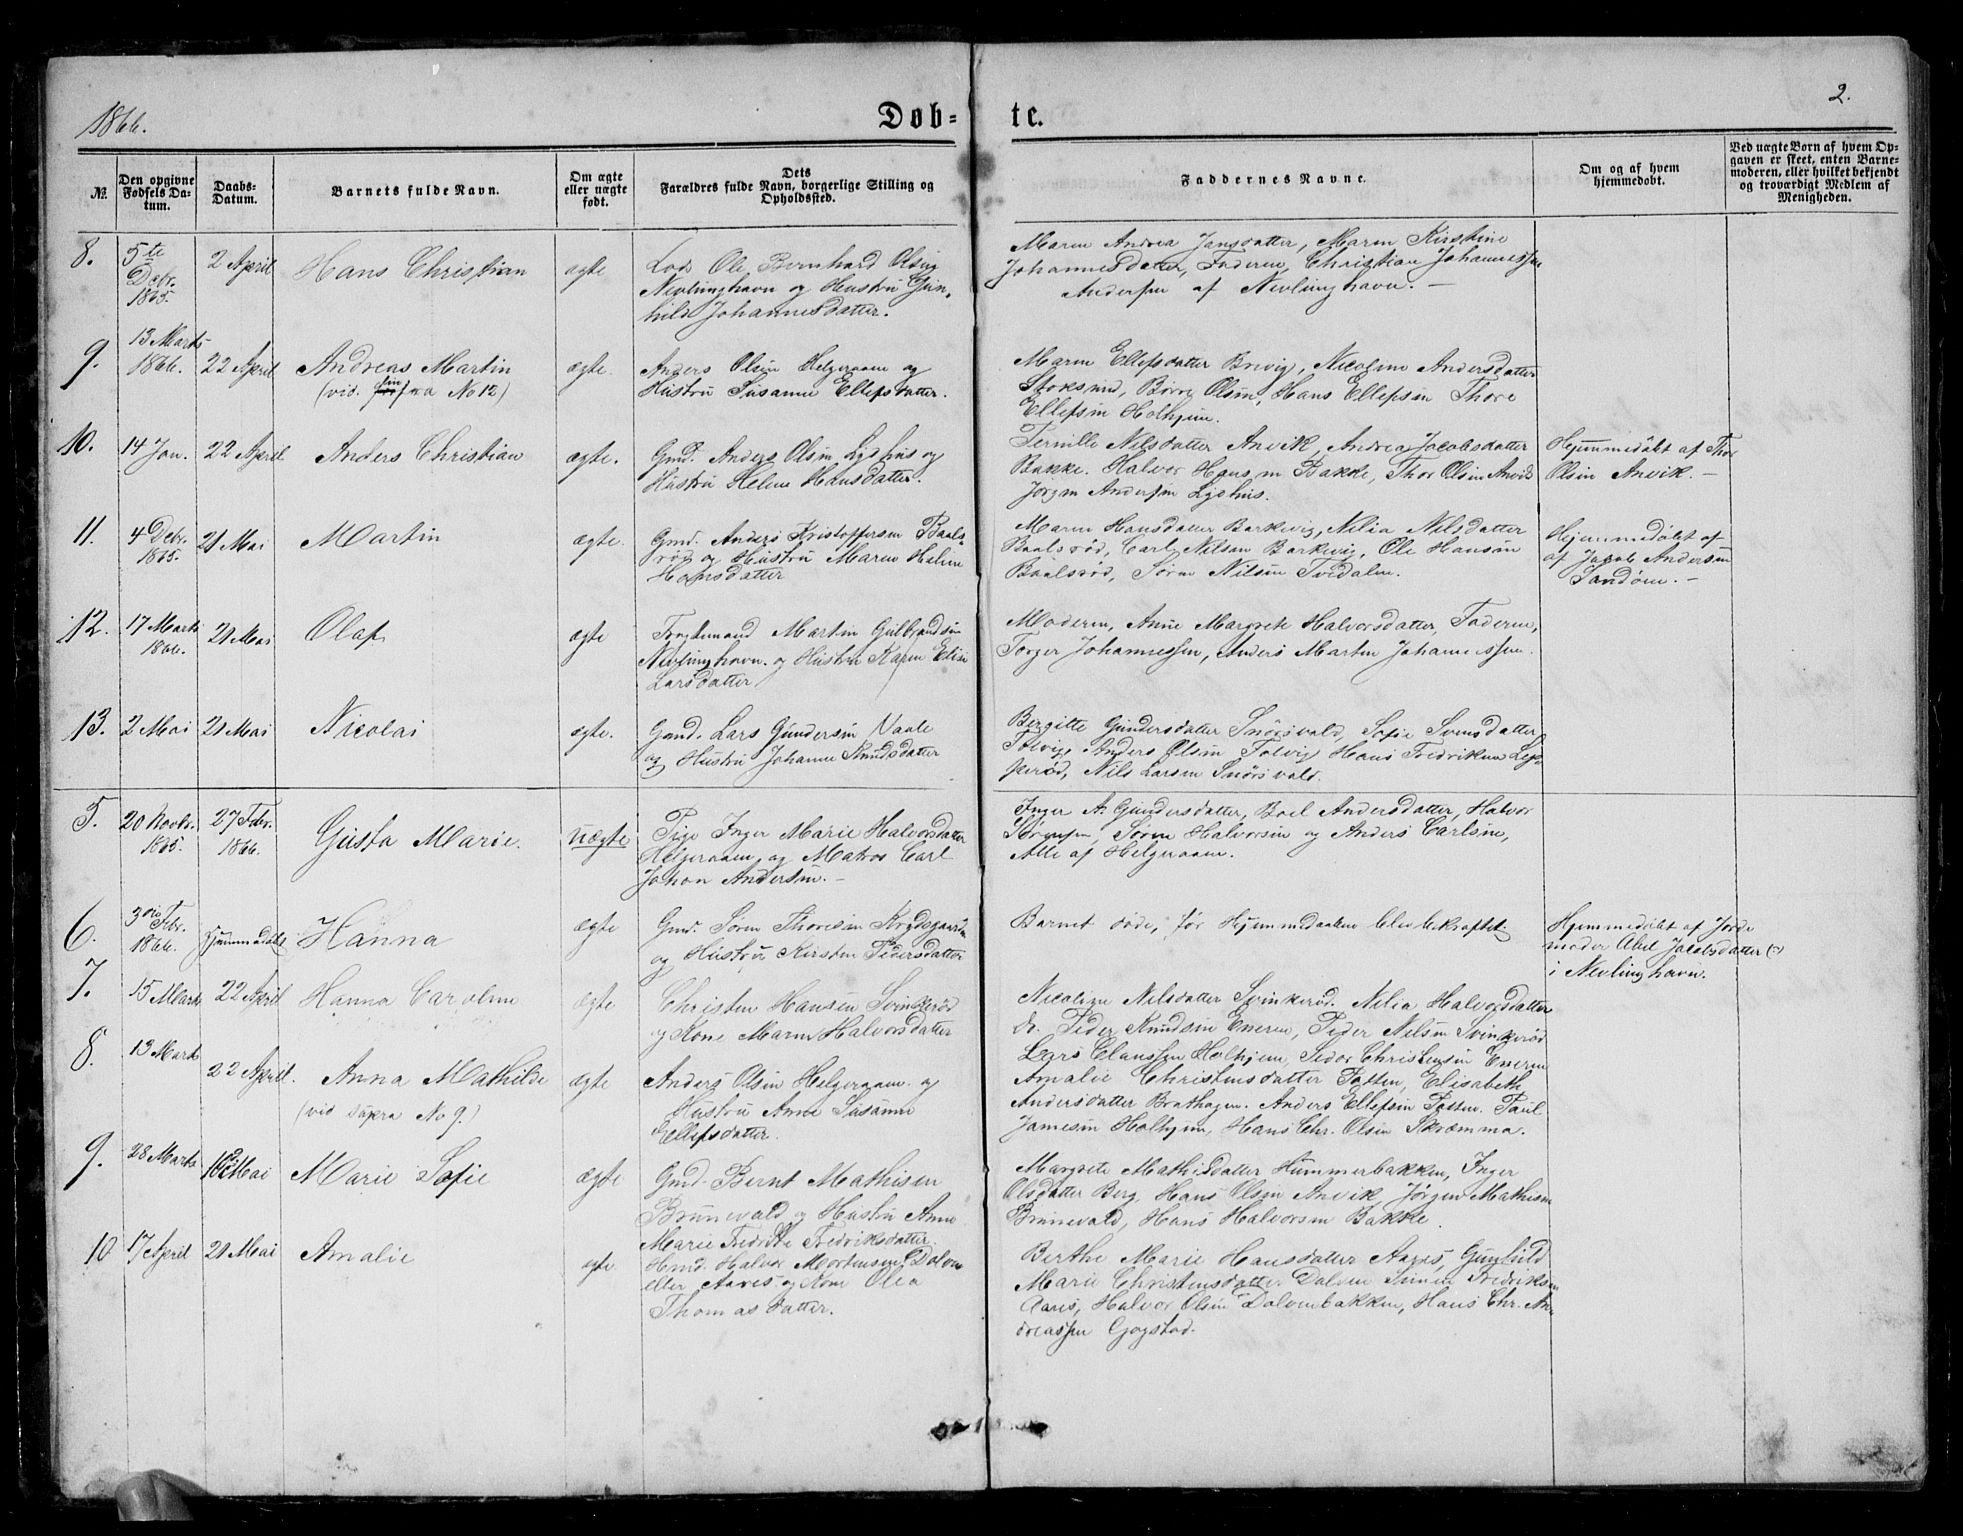 1866.
Døb-
te.
2.
№.
Den opgivne
Fødsels Da-
tum.
Daabs-
Datum.
Barnets fulde Navn.
Om ægte
eller uægte
født.
Dets
Forældres fulde Navn, borgerlige Stilling og
Opholdssted.
Faddernes Navne.
Om og af hvem
hjemmedøbt.
Ved uægte Børn af hvem Op-
gaven er skeet, enten Barne-
moderen, eller hvilket bekjendt
og troværdigt Medlem af
Menigheden.
8.
5te
Debr.
1865.
2 April
Hans Christian
ægte
Lods Ole Bernhard Olsen
Nevlunghavn og Hustru Gun-
hild Johannesdatter.
Maren Andrea Jansdatter, Maren Kirstine
Johannesdatter, Faderen, Christian Johannessen
Andersen af Nevlunghavn. —
9.
13 Marts
1866.
22 April
Andreas Martin
(vid. infra No 12)
ægte.
Anders Olsen Helgeraaen og
Hustru Susanne Ellefsdatter.
Maren Ellefsdatter Brevig, Nicoline Andersdatter
Stoksund, Børre Olsen, Hans Ellefsen Thore
Ellefsen Holhjem.
10.
14 Jan.
22 April
Anders Christian
ægte.
Gmd. Anders Olsen Lyshus og
Hustru Helene Hansdatter.
Pernille Nilsdatter Anvik, Andrea Jacobsdatter
Bakke. Halvor Hansen Bakke, Thor Olsen Anvik
Jørgen Andersen Lyshus.
Hjemmedøbt af Thor
Olsen Anvik. —
11.
4 Debr.
1865.
21 Mai
Martin
ægte.
Gmd. Anders Kristoffersen Baals-
rød og Hustru Maren Helene
Hansdatter
Maren Hansdatter Barkevig, Nilia Nilsdatter
Baalsrød, Carl Nilsen Barkevig, Ole Hansen
Baalsrød, Søren Nilsen Tvedalen.
Hjemmedøbt af
af Jacob Andersen
Sandøen. —
12.
17 Marts
1866.
21 Mai
Olaf
ægte
Fragtemand Martin Gulbrandsen
Nevlunghavn. og Hustru Karen Elise
Larsdatter
Moderen, Anne Margrete Halvorsdatter, Faderen,
Torger Johannessen, Anders Martin Johannessen.
13.
2 Mai
21 Mai
Nicolai
ægte.
Gmd. Lars Gundersen Vaale
og Hustru Johanne Knudsdatter
Bergitte Gundersdatter Snørsvald, Sofie Svensdatter
Tolvig, Anders Olsen Tolvig Hans Fredriksen Lep-
perød, Nils Larsen Snørsvald.
5.
20 Novbr.
1865.
27 Febr.
1866.
Gusta Marie.
uægte
Pige Inger Marie Halvorsdatter
Helgeraaen og Matros Carl
Johan Andersen. —
Inger A. Gundersdatter, Boel Andersdatter, Halvor
Jørgensen, Søren Halvorsen og Anders Carlsen,
Alle af Helgeraaen.
6.
3die Febr.
1866.
Hjemmedøbt
Hanna
ægte
Gmd. Søren Thoresen Krydsgaarden
og Hustru Kirsten Pedersdatter
Barnet døde, før Hjemmedaaben blev bekræftet.
Hjemmedøbt af Jorde
moder Abel Jacobsdatter
i Nevlinghavn.
7.
15 Marts
22 April
Hanna Caroline
ægte
Christen Hansen Svinkerød
og Kone Maren Halvorsdatter
Nicoline Nilsdatter Svinkerød. Nilia Halvorsdatter
do. Peder Knudsen Eneren, Peder Nilsen Svinkerød
Lars Claussen Holhjem, Peder Christensen Eneren
8.
13 Marts
22 April.
Anna Mathilde
(vid supra No 9.)
ægte
Anders Olsen Helgeraaen. og
Hustru Anne Susanne
Ellefsdatter.
Amalie Christensdatter Patten, Elisabeth
Andersdatter Brathagen. Anders Ellefsen Patten. Paul
Jamesen Holhjem, Hans Chr. Olsen Skræmma.
9.
28 Marts
10 Mai
Marie Sofie
ægte
Gmd. Bernt Mathisen
Brunevald og Hustru Anne
Marie Fredrikke Fredriksdatter.
Margrete Mathisdatter Hummerbakken, Inger
Olsdatter Berg, Hans Olsen Anvik, Jørgen Mathisen
Brunevald, Hans Halvorsen Bakke.
10
17 April
21 Mai
Amalie
ægte
Hmd. Halvor Mortensen Dalen
eller Aarøs og Kone Olea
Thomasdatter.
Berthe Marie Hansdatter Aarøs, Gunhild
Marie Christensdatter Dalen Simen Fredriksen
Aarøs, Halvor Olsen Dalenbakken, Hans Chr. An-
dreassen Gogstad.